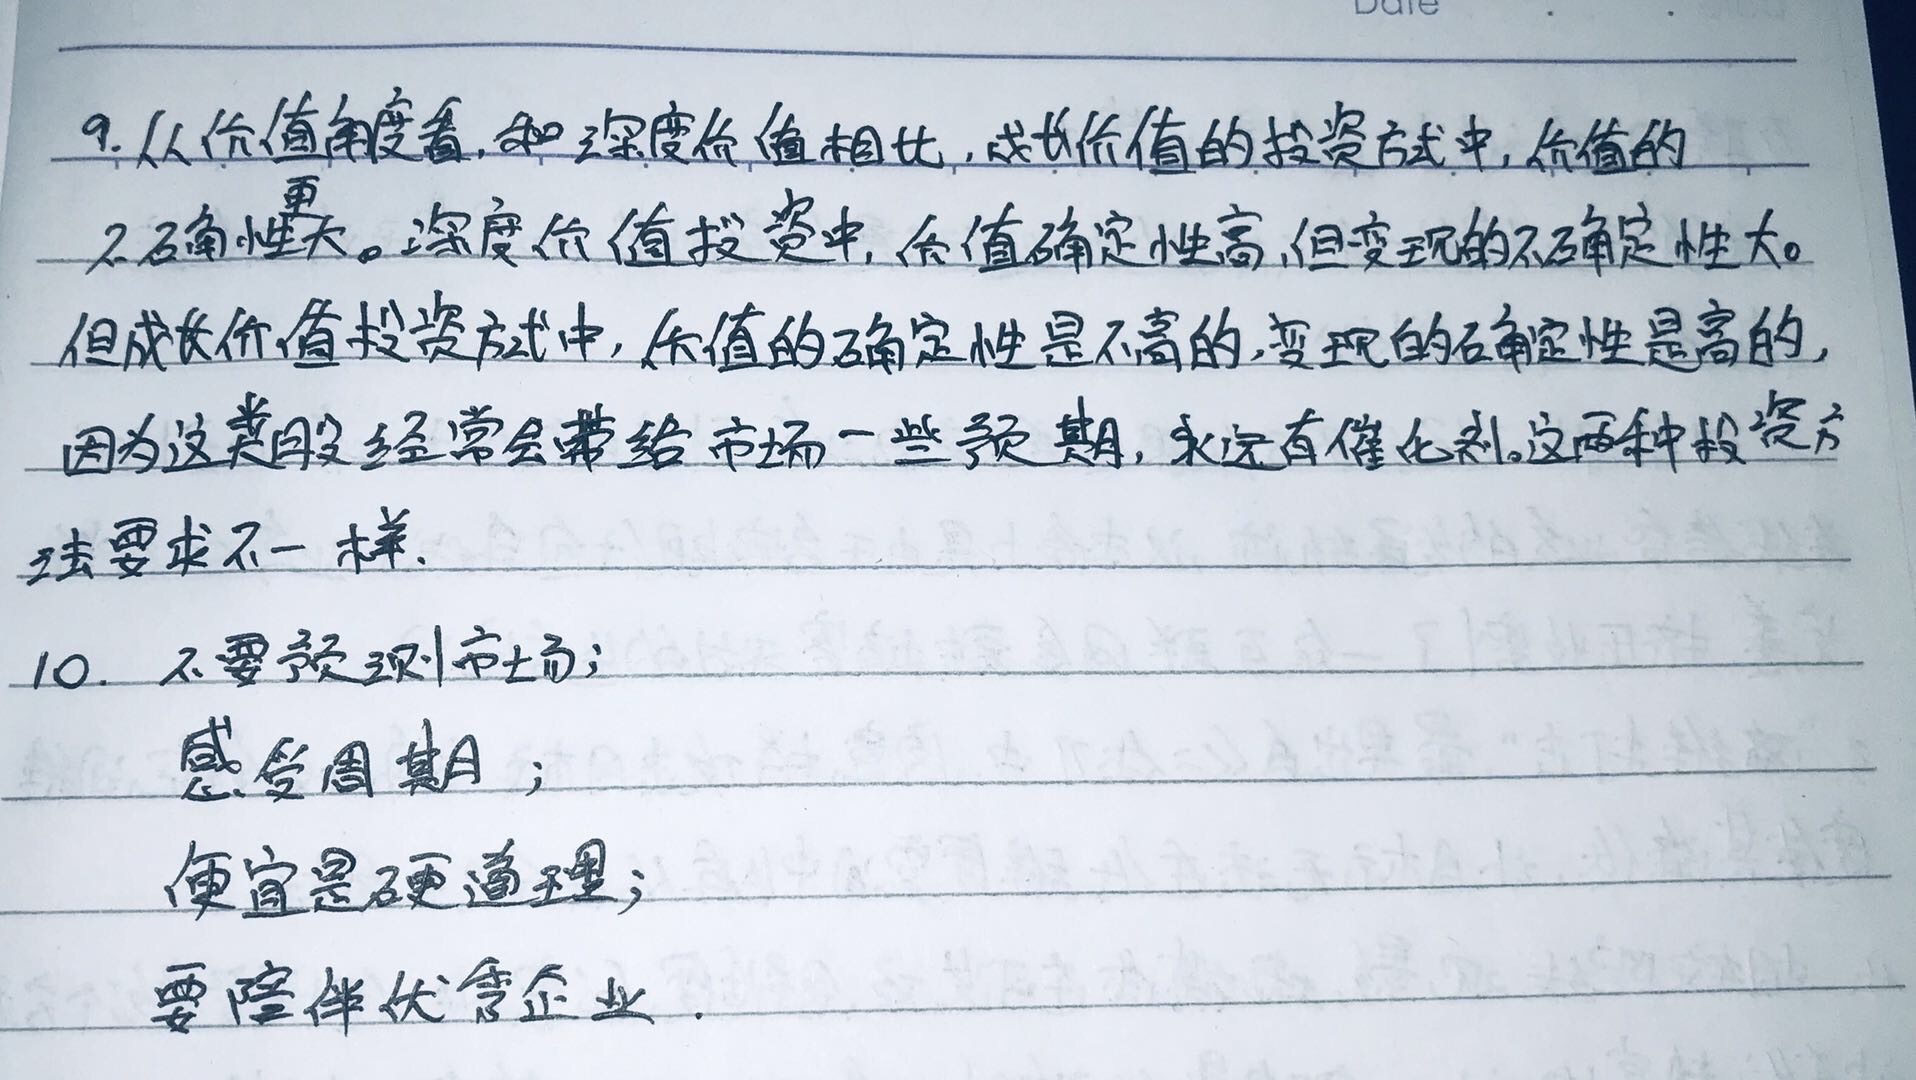 Date
9. 从价值角度看,和深度价值相比,成长价值的投资方式中,价值的
不确性更大。深度价值投资中,价值确定性高,但变现的不确定性大。
但成长价值投资方式中,价值的确定性是不高的,变现的确定性是高的,
因为这类股经常会带给市场一些预期,永远有催化剂。这两种投资方
法要求不一样.
10. 不要预测市场;
感受周期;
便宜是硬道理;
要陪伴优秀企业.